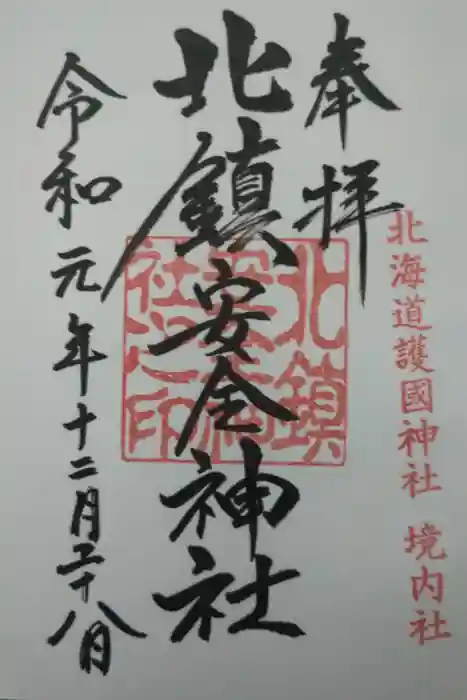 奉拝
北海道護國神社 境内社
北鎮安全神社
北鎮安全神社之印
令和元年十二月二十八日